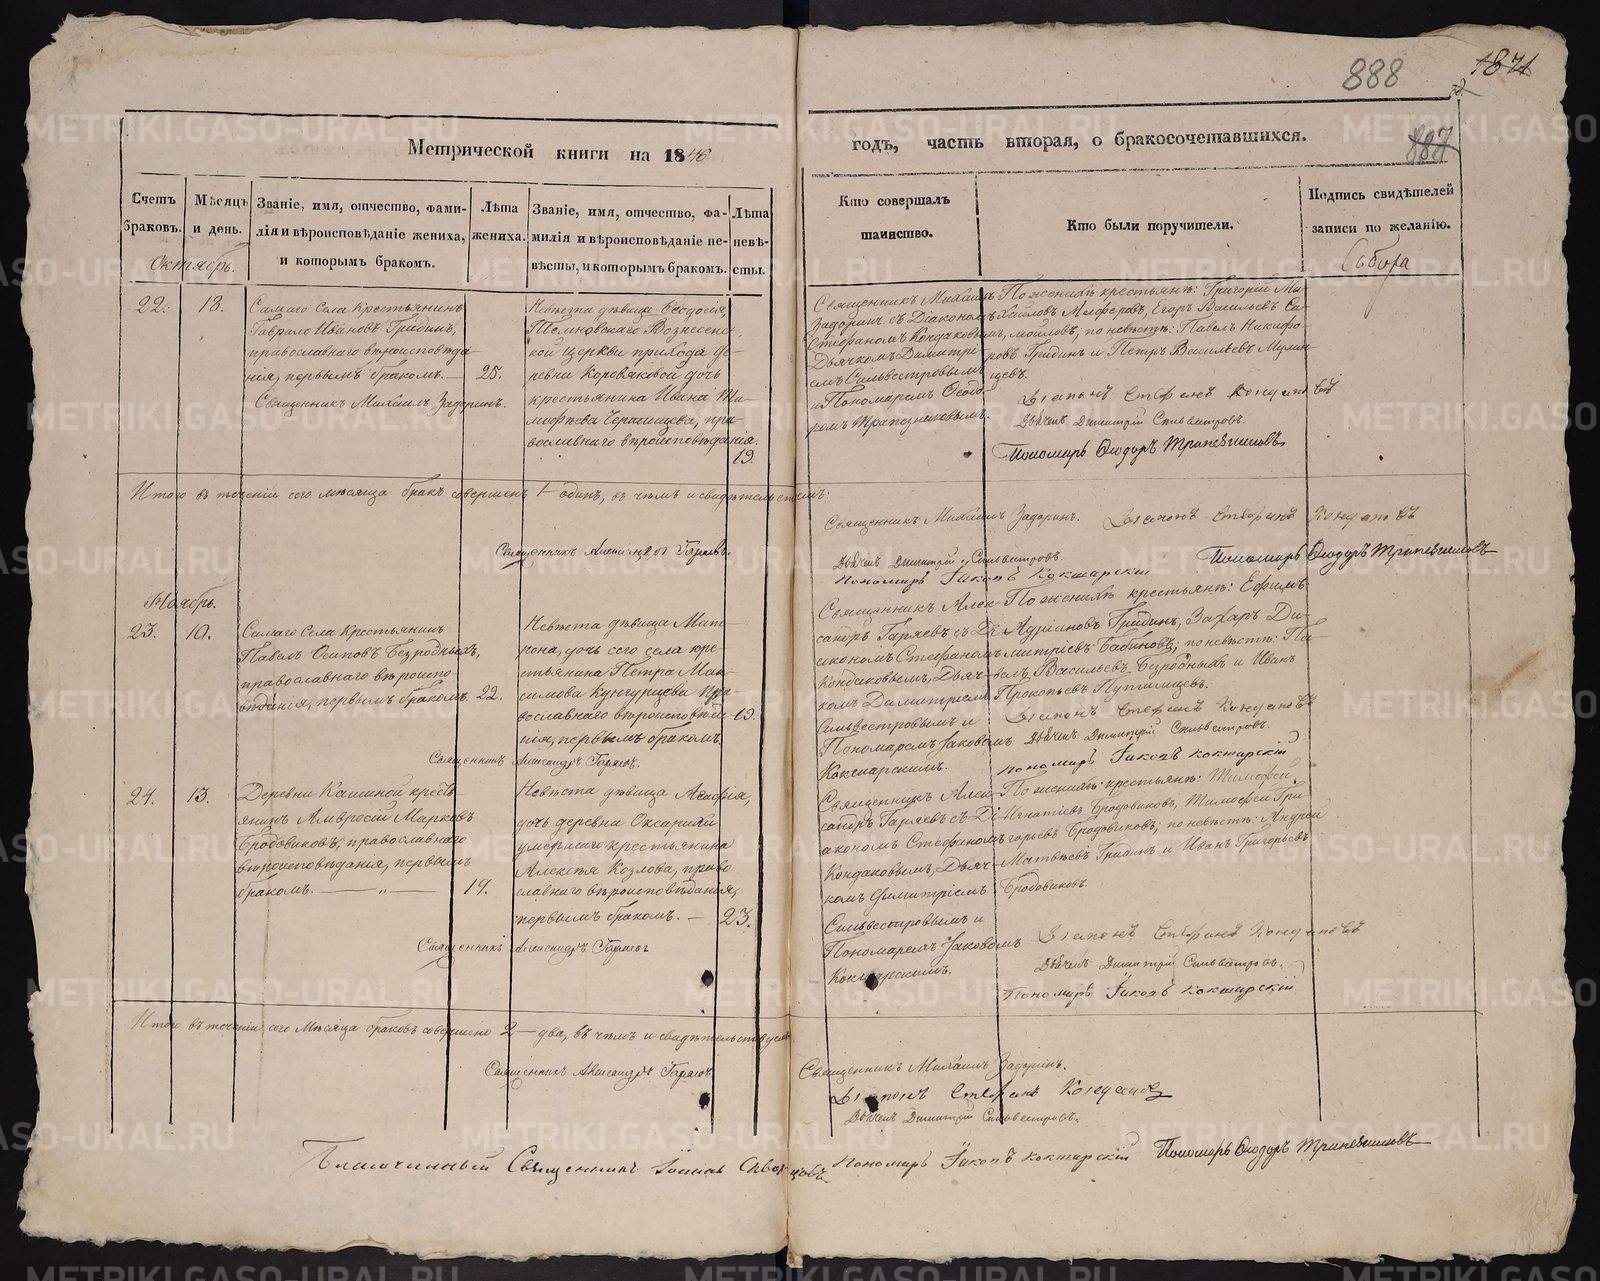 888
1871
887
Метрической книги на 1846
годъ, часть вторая, о бракосочетавшихся.
Счетъ браковъ.
Мѣсяцъ и день.
Званіе, имя, отчество, фами-
лія и вѣроисповѣданіе жениха,
и которымъ бракомъ.
Лѣта жениха.
Званіе, имя, отчество, фа-
милія и вѣроисповѣданіе не-
вѣсты, и которымъ бракомъ.
Лѣта невѣ-
сты.
Кто совершалъ
таинство.
Кто были поручители.
Подпись свидѣтелей
записи по желанію.
Октябрь.
22.
18.
Самаго Села Крестьянинъ
Гаврило Ивановъ Гридинъ,
православнаго вѣроисповѣда-
нія, первымъ бракомъ.
25.
Священникъ Михаилъ Задоринъ.
Невѣста дѣвица Ѳеодосія,
Вознесенс-
кой церкви прихода де-
ревни Коровяковой дочь
крестьянина Ивана Ти-
мофѣева пра-
вославнаго вѣроисповѣданія.
19.
Священникъ Михаилъ
Задоринъ съ Діакономъ
Стефаномъ Кондаковымъ,
Дьячкомъ Димитрі-
емъ Сильвестровымъ
и Пономаремъ Ѳеодо-
ромъ Трапезниковымъ.
По женихѣ крестьяне: Григорій Ми-
хайловъ Алферовъ, Егоръ Васильевъ
по невѣстѣ: Павелъ Никифо-
ровъ Гридинъ и Петръ Васильевъ
Діаконъ Стефанъ Кондаковъ
Дьячекъ Димитрій Сильвестровъ.
Пономарь Ѳеодоръ Трапезниковъ
Итого въ теченіи сего мѣсяца бракъ совершенъ 1 - одинъ, въ чемъ и свидѣтельствуемъ:
Священникъ Михаилъ Задоринъ. Діаконъ Стефанъ Кондаковъ
Священникъ Александръ Гаряевъ.
Дьячекъ Димитрій Сильвестровъ.
Пономарь Ѳеодоръ Трапезниковъ
Пономарь Іаковъ Кокшарскій
Ноябрь.
23.
10.
Самаго Села Крестьянинъ
Павелъ Осиповъ Безродныхъ,
православнаго вѣроиспо-
вѣданія, первымъ бракомъ.
22.
Невѣста дѣвица Мат-
рона, дочь сего села кре-
стьянина Петра Мак-
симова Кунгурцева пра-
вославнаго вѣроисповѣда-
нія, первымъ бракомъ.
19.
Священникъ Александръ Гаряевъ.
Священникъ Алек-
сандръ Гаряевъ съ Ді-
акономъ Стефаномъ
Кондаковымъ, Дьяч-
комъ Димитріемъ
Сильвестровымъ и
Пономаремъ Іаковомъ
Кокшарскимъ.
По женихѣ крестьяне: Ефимъ
Адріановъ Гридинъ, Захаръ Ди-
митріевъ Бабиновъ, по невѣстѣ: Па-
велъ Васильевъ Безродныхъ и Иванъ
Прокопьевъ Путимцевъ.
Діаконъ Стефанъ Кондаковъ
Дьячекъ Димитрій Сильвестровъ.
Пономарь Іаковъ Кокшарскій
24.
13.
Деревни Кашиной кресть-
янинъ Амвросій Марковъ
Бродовиковъ, православнаго
вѣроисповѣданія, первымъ
бракомъ.
19.
Невѣста дѣвица Агафія,
дочь деревни Оксариной
умершаго крестьянина
Алексѣя Козлова, право
славнаго вѣроисповѣданія,
первымъ бракомъ.
23.
Священникъ Александръ Гаряевъ
Священникъ Алек-
сандръ Гаряевъ съ Ді-
акономъ Стефаномъ
Кондаковымъ, Дьяч-
комъ Димитріемъ
Сильвестровымъ и
Пономаремъ Іаковомъ
Кокшарскимъ.
По женихѣ крестьяне: Тимофей
Игнатіевъ Бродовиковъ, Тимофей Гри-
горьевъ Бродовиковъ, по невѣстѣ: Андрей
Матвѣевъ Гридинъ и Иванъ Григорьевъ
Бродовиковъ.
Діаконъ Стефанъ Кондаковъ
Дьячекъ Димитрій Сильвестровъ.
Пономарь Іаковъ Кокшарскій
Итого въ теченіи сего мѣсяца браковъ совершено 2 - два, въ чемъ и свидѣтельствуемъ
Священникъ Михаилъ Задоринъ.
Священникъ Александръ Гаряевъ
Діаконъ Стефанъ Кондаковъ
Дьячекъ Димитрій Сильвестровъ.
Пономарь Іаковъ Кокшарскій Пономарь Ѳеодоръ Трапезниковъ
Благочинный Священникъ Іоаннъ
METRIKI.GASO-URAL.RU